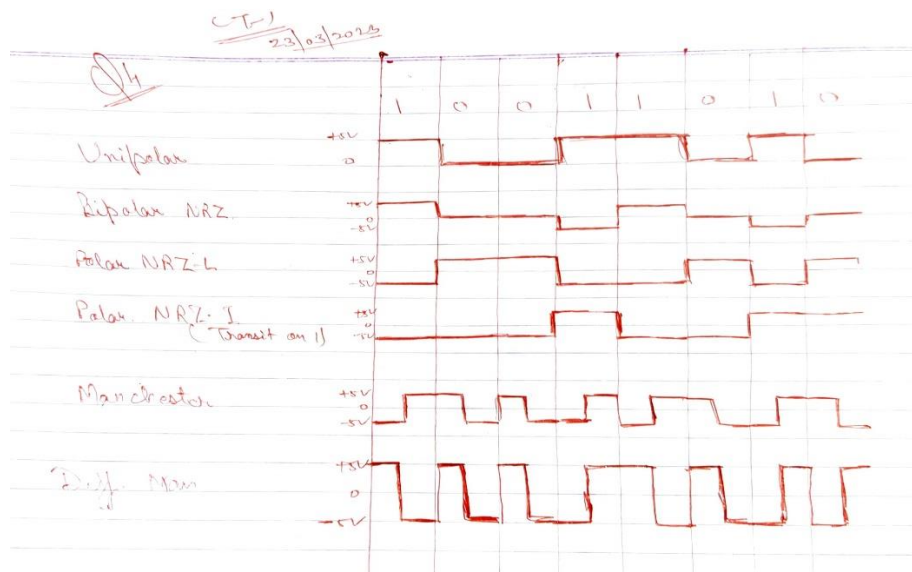 CT-1
23/03/2023
Q4
1 0 0 1 1 0 1 0
Unipolar +5V
0
Bipolar NRZ +5V
0
-5V
Polar NRZ-L +5V
0
-5V
Polar NRZ-I +5V
0
(Transit on 1) -5V
Manchestor +5V
0
-5V
Diff. Man +5V
0
-5V